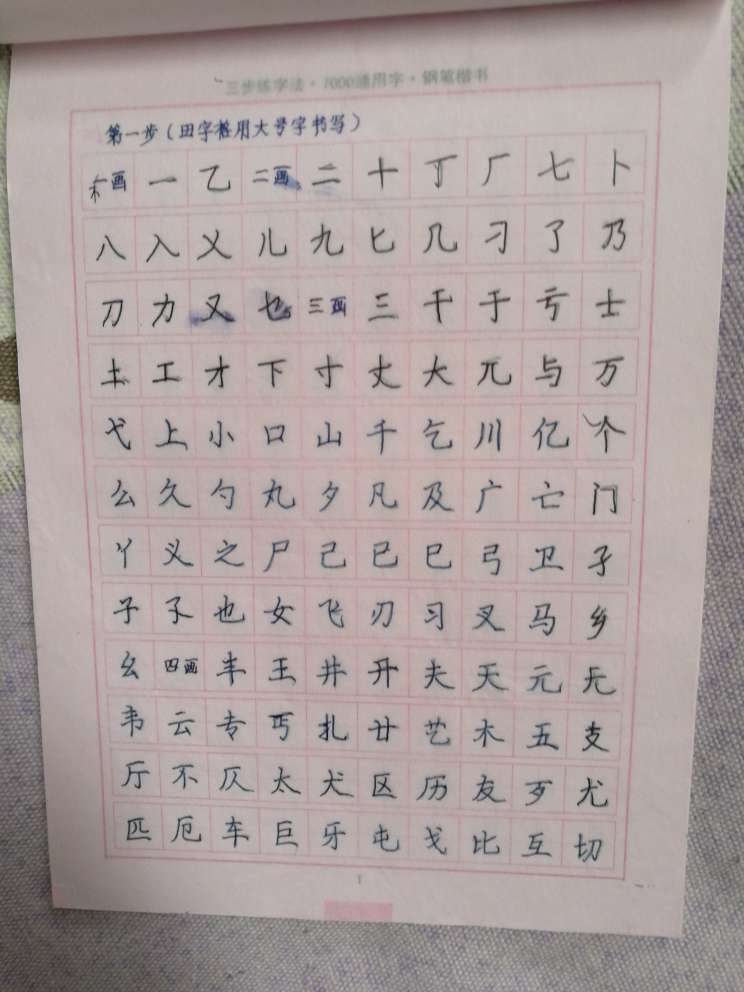 三步练字法·7000通用字·钢笔楷书
第一步（田字格用大号字书写）
画 一 乙 二画 二 十 丁 厂 七 卜
八 入 乂 儿 九 匕 几 刁 了 乃
刀 力 又 乜 三画 三 干 于 亏 士
土 工 才 下 寸 丈 大 兀 与 万
弋 上 小 口 山 千 乞 川 亿 个
么 久 勺 丸 夕 凡 及 广 亡 门
丫 义 之 尸 己 已 巳 弓 卫 孑
子 孓 也 女 飞 刃 习 叉 马 乡
幺 四画 丰 王 井 开 夫 天 元 无
韦 云 专 丐 扎 廿 艺 木 五 支
厅 不 仄 太 犬 区 历 友 歹 尤
匹 厄 车 巨 牙 屯 戈 比 互 切
1